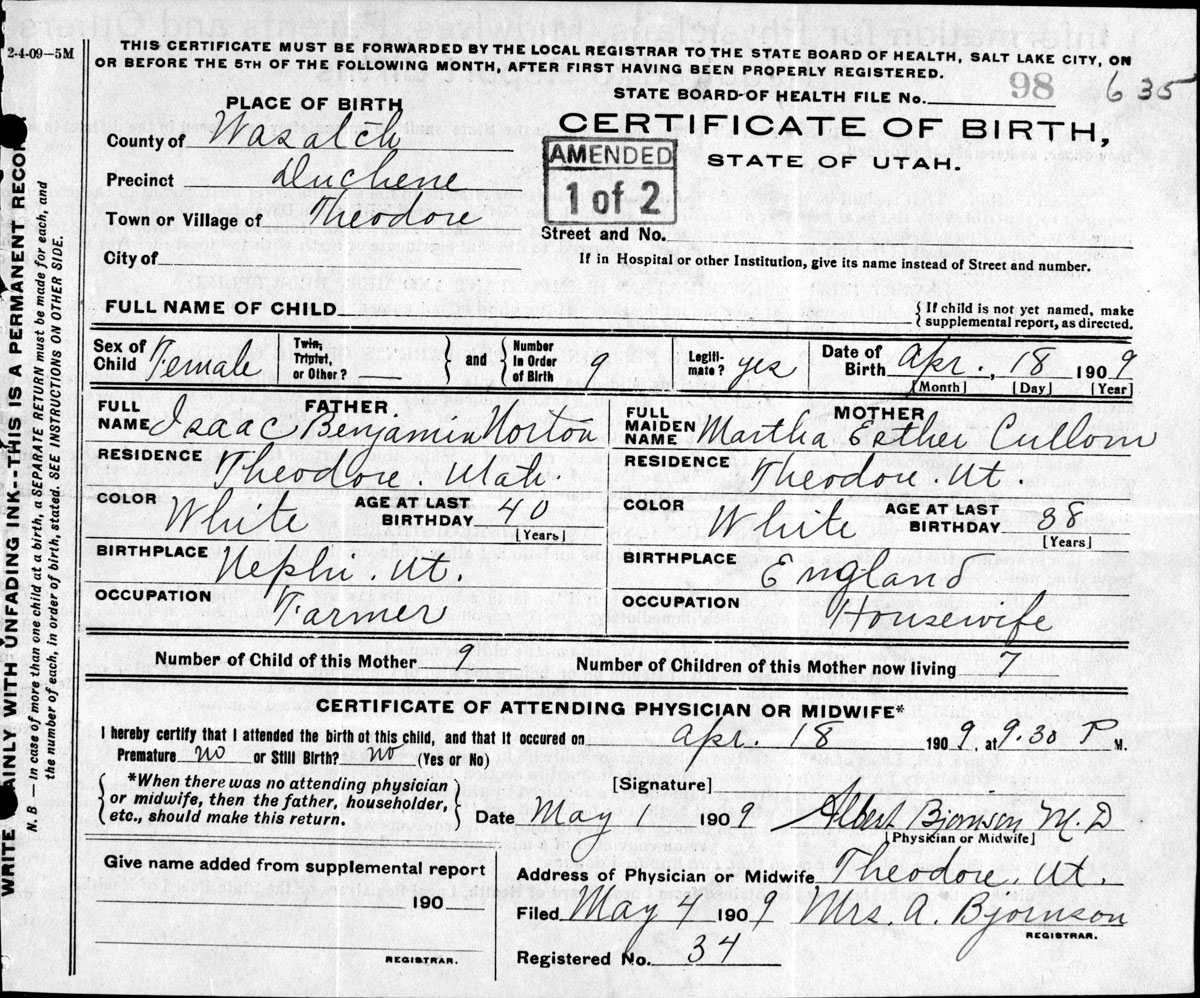 2-4-09—5M
THIS CERTIFICATE MUST BE FORWARDED BY THE LOCAL REGISTRAR TO THE STATE BOARD OF HEALTH, SALT LAKE CITY, ON
OR BEFORE THE 5TH OF THE FOLLOWING MONTH, AFTER FIRST HAVING BEEN PROPERLY REGISTERED.
STATE BOARD OF HEALTH FILE No. 98 635
PLACE OF BIRTH
CERTIFICATE OF BIRTH,
STATE OF UTAH.
County of Wasatch
AMENDED
1 of 2
Precinct Duchene
Town or Village of Theodore
Street and No.
City of
If in Hospital or other Institution, give its name instead of Street and number.
FULL NAME OF CHILD
{ If child is not yet named, make
supplemental report, as directed.
Sex of Child Female Twin, Triplet, or Other? — } and { Number in Order of Birth 9 Legiti-mate? yes Date of Birth Apr. 18 1909
[Month] [Day] [Year]
FATHER.
FULL NAME Isaac Benjamin Norton
RESIDENCE Theodore. Utah
COLOR White AGE AT LAST BIRTHDAY 40
[Years]
BIRTHPLACE Nephi. Ut.
OCCUPATION Farmer
MOTHER
FULL MAIDEN NAME Martha Esther Cullom
RESIDENCE Theodore. Ut.
COLOR White AGE AT LAST BIRTHDAY 38
[Years]
BIRTHPLACE England
OCCUPATION Housewife
Number of Child of this Mother 9 Number of Children of this Mother now living 7
CERTIFICATE OF ATTENDING PHYSICIAN OR MIDWIFE*
I hereby certify that I attended the birth of this child, and that it occured on Apr. 18 1909, at 9.30 P M.
Premature no or Still Birth? no (Yes or No)
{ *When there was no attending physician
or midwife, then the father, householder,
etc., should make this return. }
[Signature]
Date May 1 1909 Albert Bjornson M.D
[Physician or Midwife]
Give name added from supplemental report
190
REGISTRAR.
Address of Physician or Midwife Theodore. Ut.
Filed May 7 1909 Mrs. A. Bjornson
REGISTRAR.
Registered No. 34
WRITE PLAINLY WITH UNFADING INK--THIS IS A PERMANENT RECORD.
N. B — In case of more than one child at a birth, a SEPARATE RETURN must be made for each, and
the number of each, in order of birth, stated. SEE INSTRUCTIONS ON OTHER SIDE.